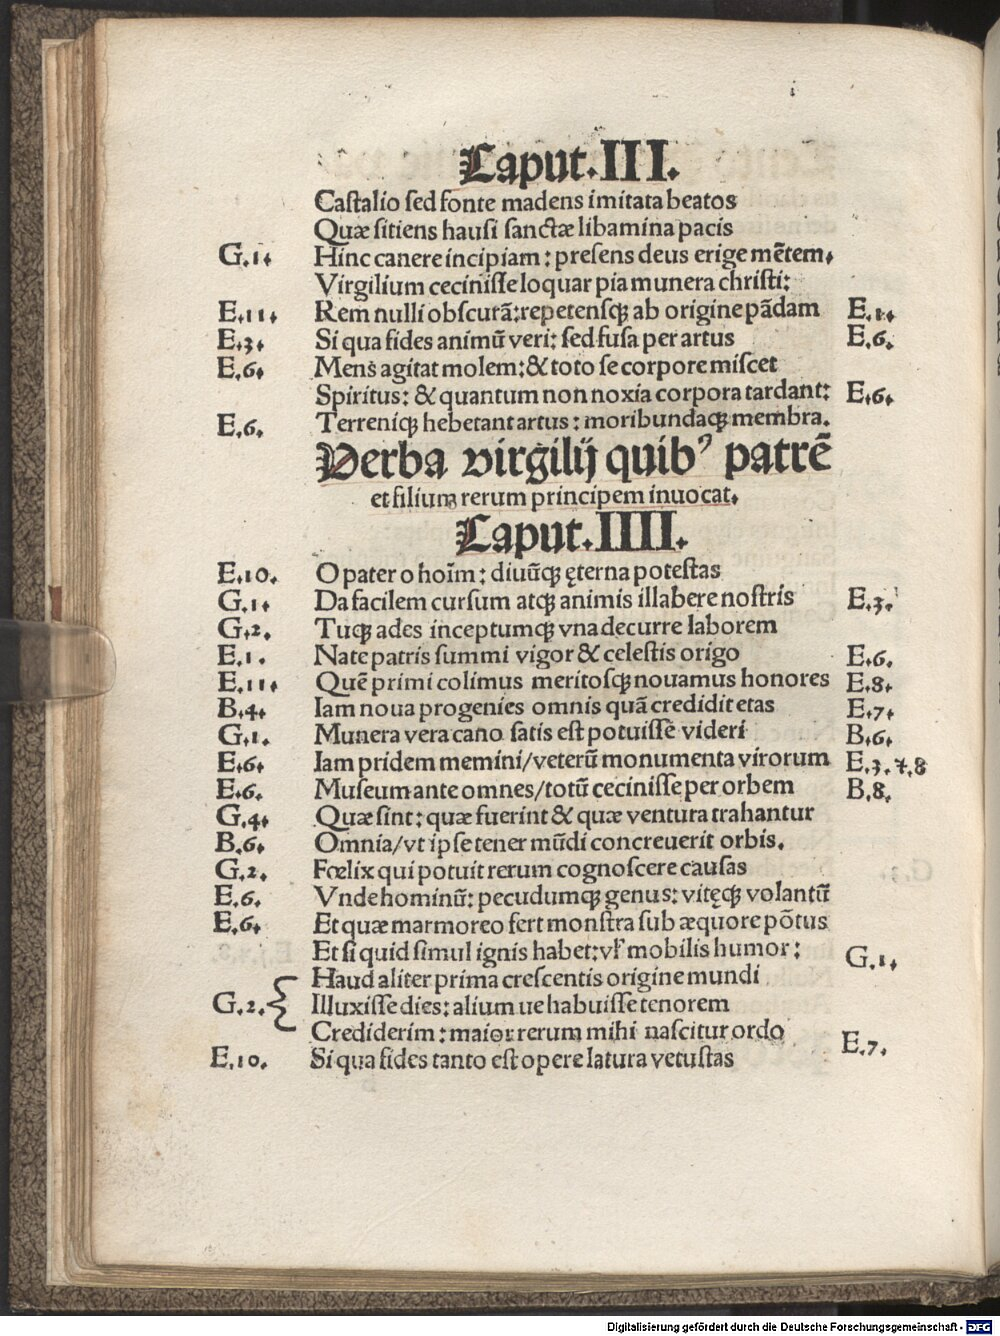 Caput.III.
Castalio sed fonte madens imitata beatos
Quæ sitiens hausi sanctæ libamina pacis
G.1. Hinc canere incipiam: presens deus erige mẽtem.
Virgilium cecinisse loquar pia munera christi:
E.11. Rem nulli obscurã: repetensqꝫ ab origine pãdam E.1.
E.3. Si qua fides animũ veri: sed fusa per artus E.6.
E.6. Mens agitat molem: & toto se corpore miscet
Spiritus: & quantum non noxia corpora tardant: E.6.
E.6. Terreniqꝫ hebetant artus: moribundaqꝫ membra.
Verba virgilij quibꝰ patrẽ
et filium rerum principem inuocat.
Caput.IIII.
E.10. O pater o hoĩm: diuũqꝫ ęterna potestas
G.1. Da facilem cursum atqꝫ animis illabere nostris E.3.
G.2. Tuqꝫ ades inceptumqꝫ vna decurre laborem
E.1. Nate patris summi vigor & celestis origo E.6.
E.11. Quẽ primi colimus meritosqꝫ nouamus honores E.8.
B.4. Iam noua progenies omnis quã credidit etas E.7.
G.1. Munera vera cano satis est potuisse videri B.6.
E.6. Iam pridem memini/veterũ monumenta virorum E.3.7.8
E.6. Museum ante omnes/totũ cecinisse per orbem B.8.
G.4. Quæ sint: quæ fuerint & quæ ventura trahantur
B.6. Omnia/vt ipse tener mũdi concreuerit orbis.
G.2. Fœlix qui potuit rerum cognoscere causas
E.6. Vnde hominũ: pecudumqꝫ genus: vitęqꝫ volantũ
E.6. Et quæ marmoreo fert monstra sub æquore põtus
Et si quid simul ignis habet: vl' mobilis humor: G.1.
Haud aliter prima crescentis origine mundi
G.2. Illuxisse dies: alium ue habuisse tenorem
Crediderim: maior rerum mihi nascitur ordo E.7.
E.10. Si qua fides tanto est opere latura vetustas
Digitalisierung gefördert durch die Deutsche Forschungsgemeinschaft - DFG